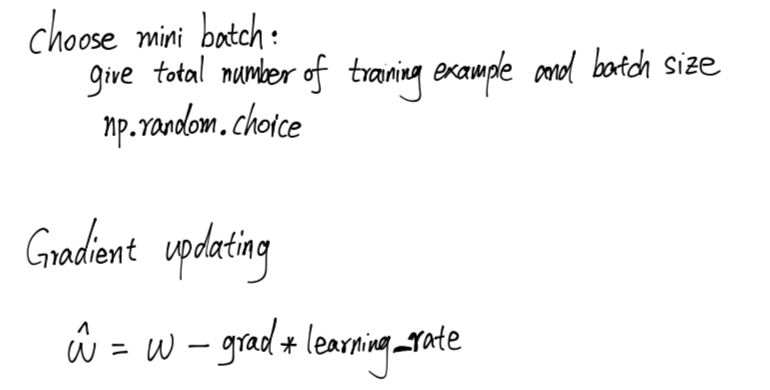 choose mini batch:
give total number of training example and batch size
np.random.choice
Gradient updating
ŵ = w - grad * learning_rate